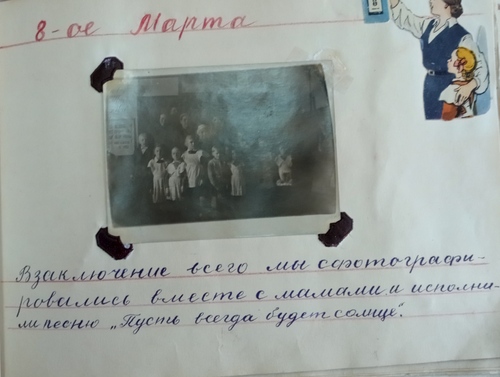 8-ое Марта
8
Взаключение всего мы сфотографи-
ровались вместе с мамами и исполни-
ли песню „Пусть всегда будет солнце".